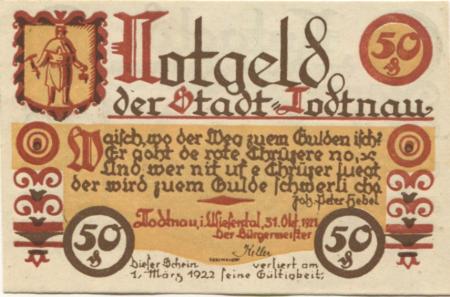 Notgeld
50 ₰
der Stadt Todtnau
Waisch, wo der Weg zuem Gulden isch?
Er goht de rote Chrüzere no,
Und wer nit uf e Chrüzer luegt
der wird zuem Gulde schwerli cho
Joh. Peter Hebel
Todtnau, i. Wiesental, 31. Okt. 1921
Der Bürgermeister
50 ₰
50 ₰
Dieser Schein verliert am
1. März 1922 seine Gültigkeit.